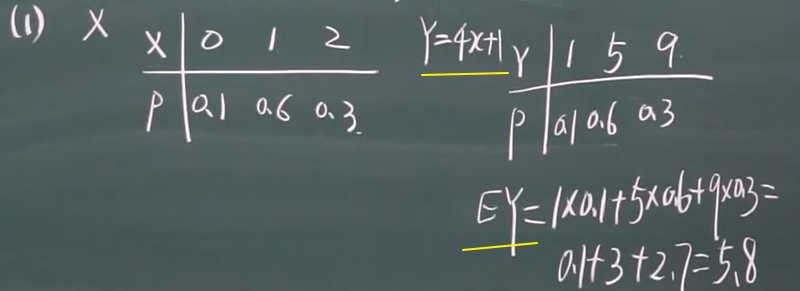 (1) X
X 0 1 2
P 0.1 0.6 0.3
Y=4x+1
Y 1 5 9
P 0.1 0.6 0.3
EY=1×0.1+5×0.6+9×0.3=
0.1+3+2.7=5.8